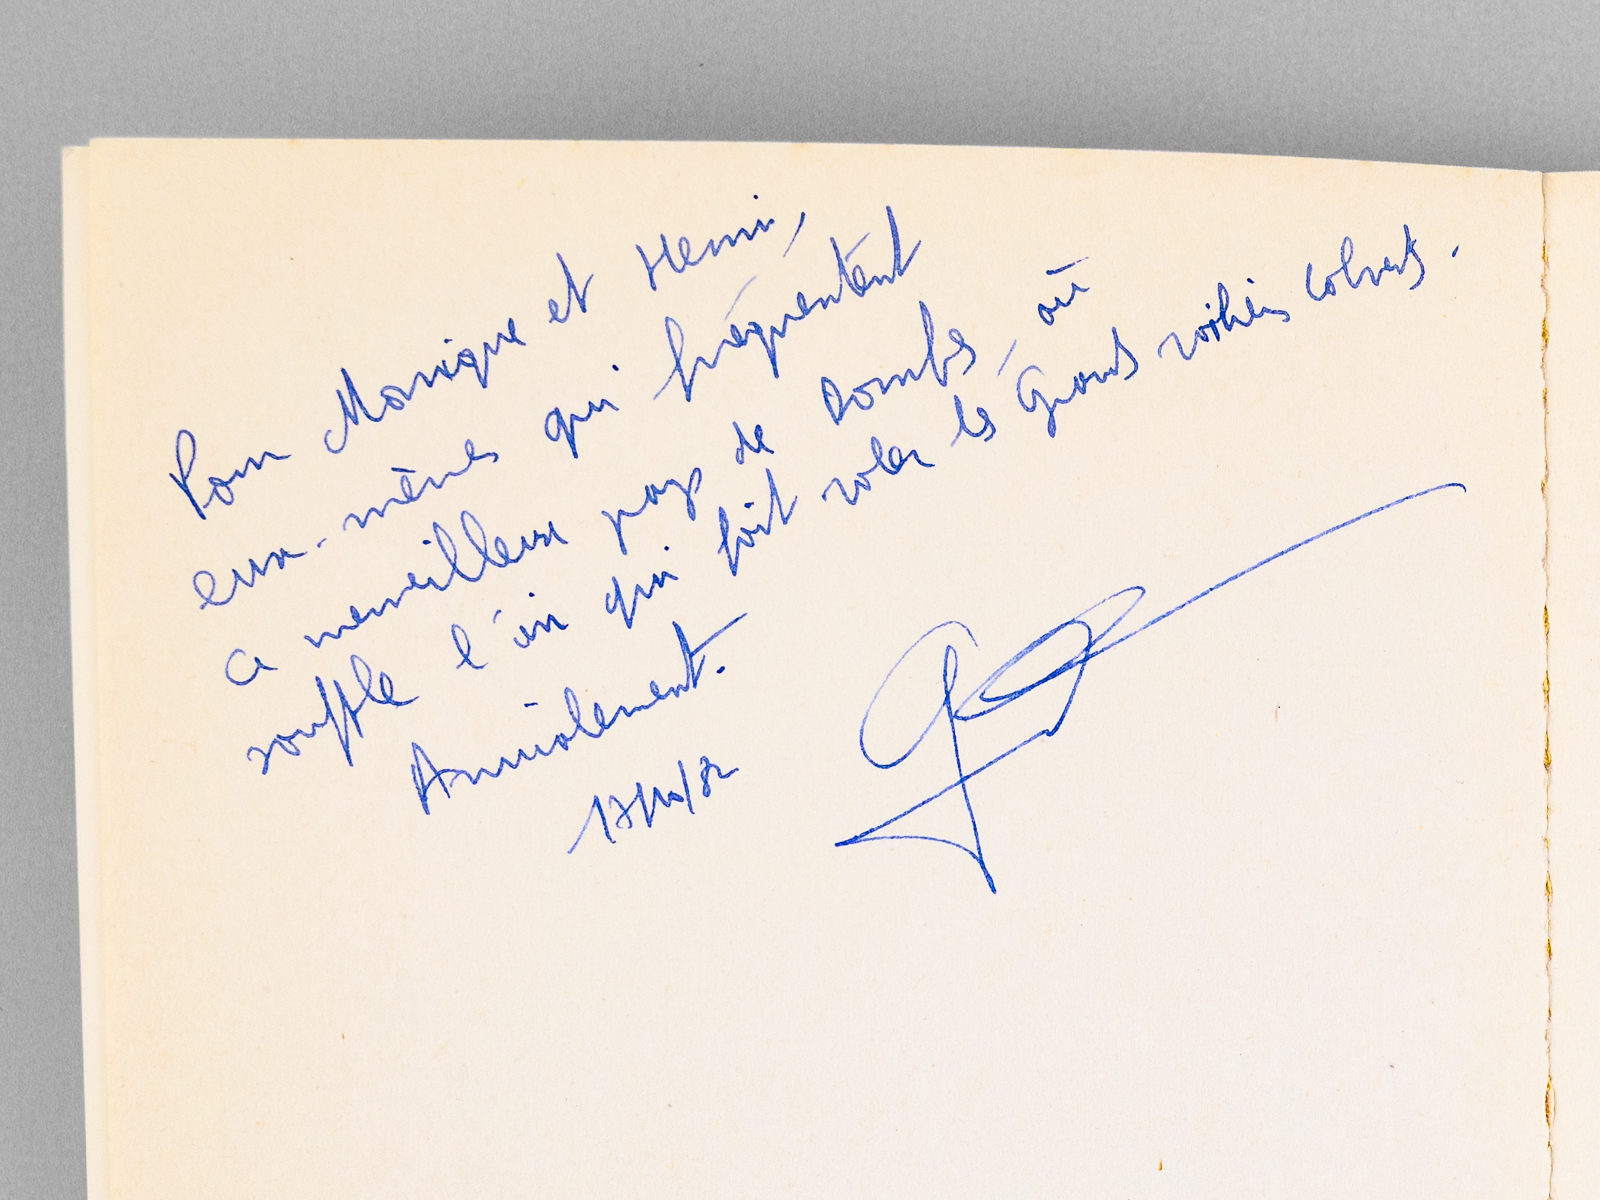 Pour Monique et Henri,
eux-mêmes qui fréquentent
ce merveilleux pays de Dombes, où
souffle l'air qui fait voler les Grands voiliers colverts.
Amicalement.
17/10/82